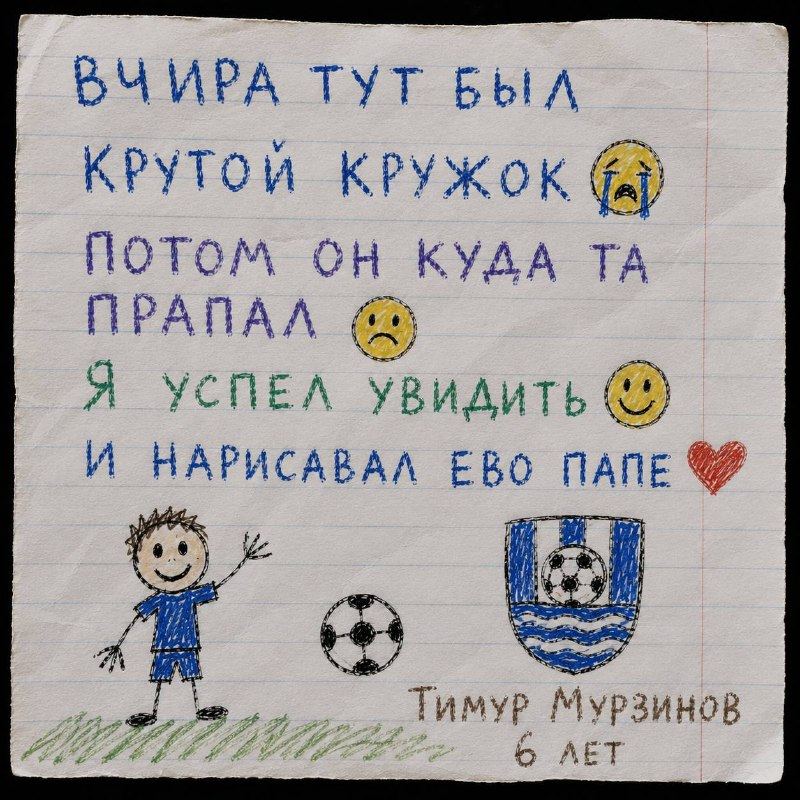 ВЧИРА ТУТ БЫЛ
КРУТОЙ КРУЖОК
ПОТОМ ОН КУДА ТА
ПРАПАЛ
Я УСПЕЛ УВИДИТЬ
И НАРИСАВАЛ ЕВО ПАПЕ
Тимур Мурзинов
6 лет